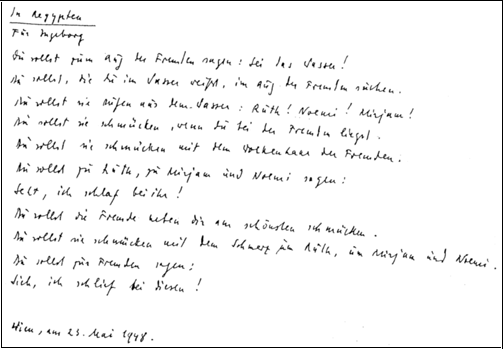 In Aegypten
Für Ingeborg
Du sollst zum Aug der Fremden sagen: Sei das Wasser!
Du sollst, die du im Wasser weißt, im Aug der Fremden suchen.
Du sollst sie rufen aus dem Wasser: Ruth! Noemi! Mirjam!
Du sollst sie schmücken, wenn du bei der Fremden liegst.
Du sollst sie schmücken mit dem Wolkenhaar der Fremden.
Du sollst zu Ruth, zu Mirjam und Noemi sagen:
Seht, ich schlaf bei ihr!
Du sollst die Fremde neben dir am schönsten schmücken.
Du sollst sie schmücken mit dem Schmerz um Ruth, um Mirjam und Noemi.
Du sollst zur Fremden sagen:
Sieh, ich schlief bei diesen!
Wien, am 23. Mai 1948.